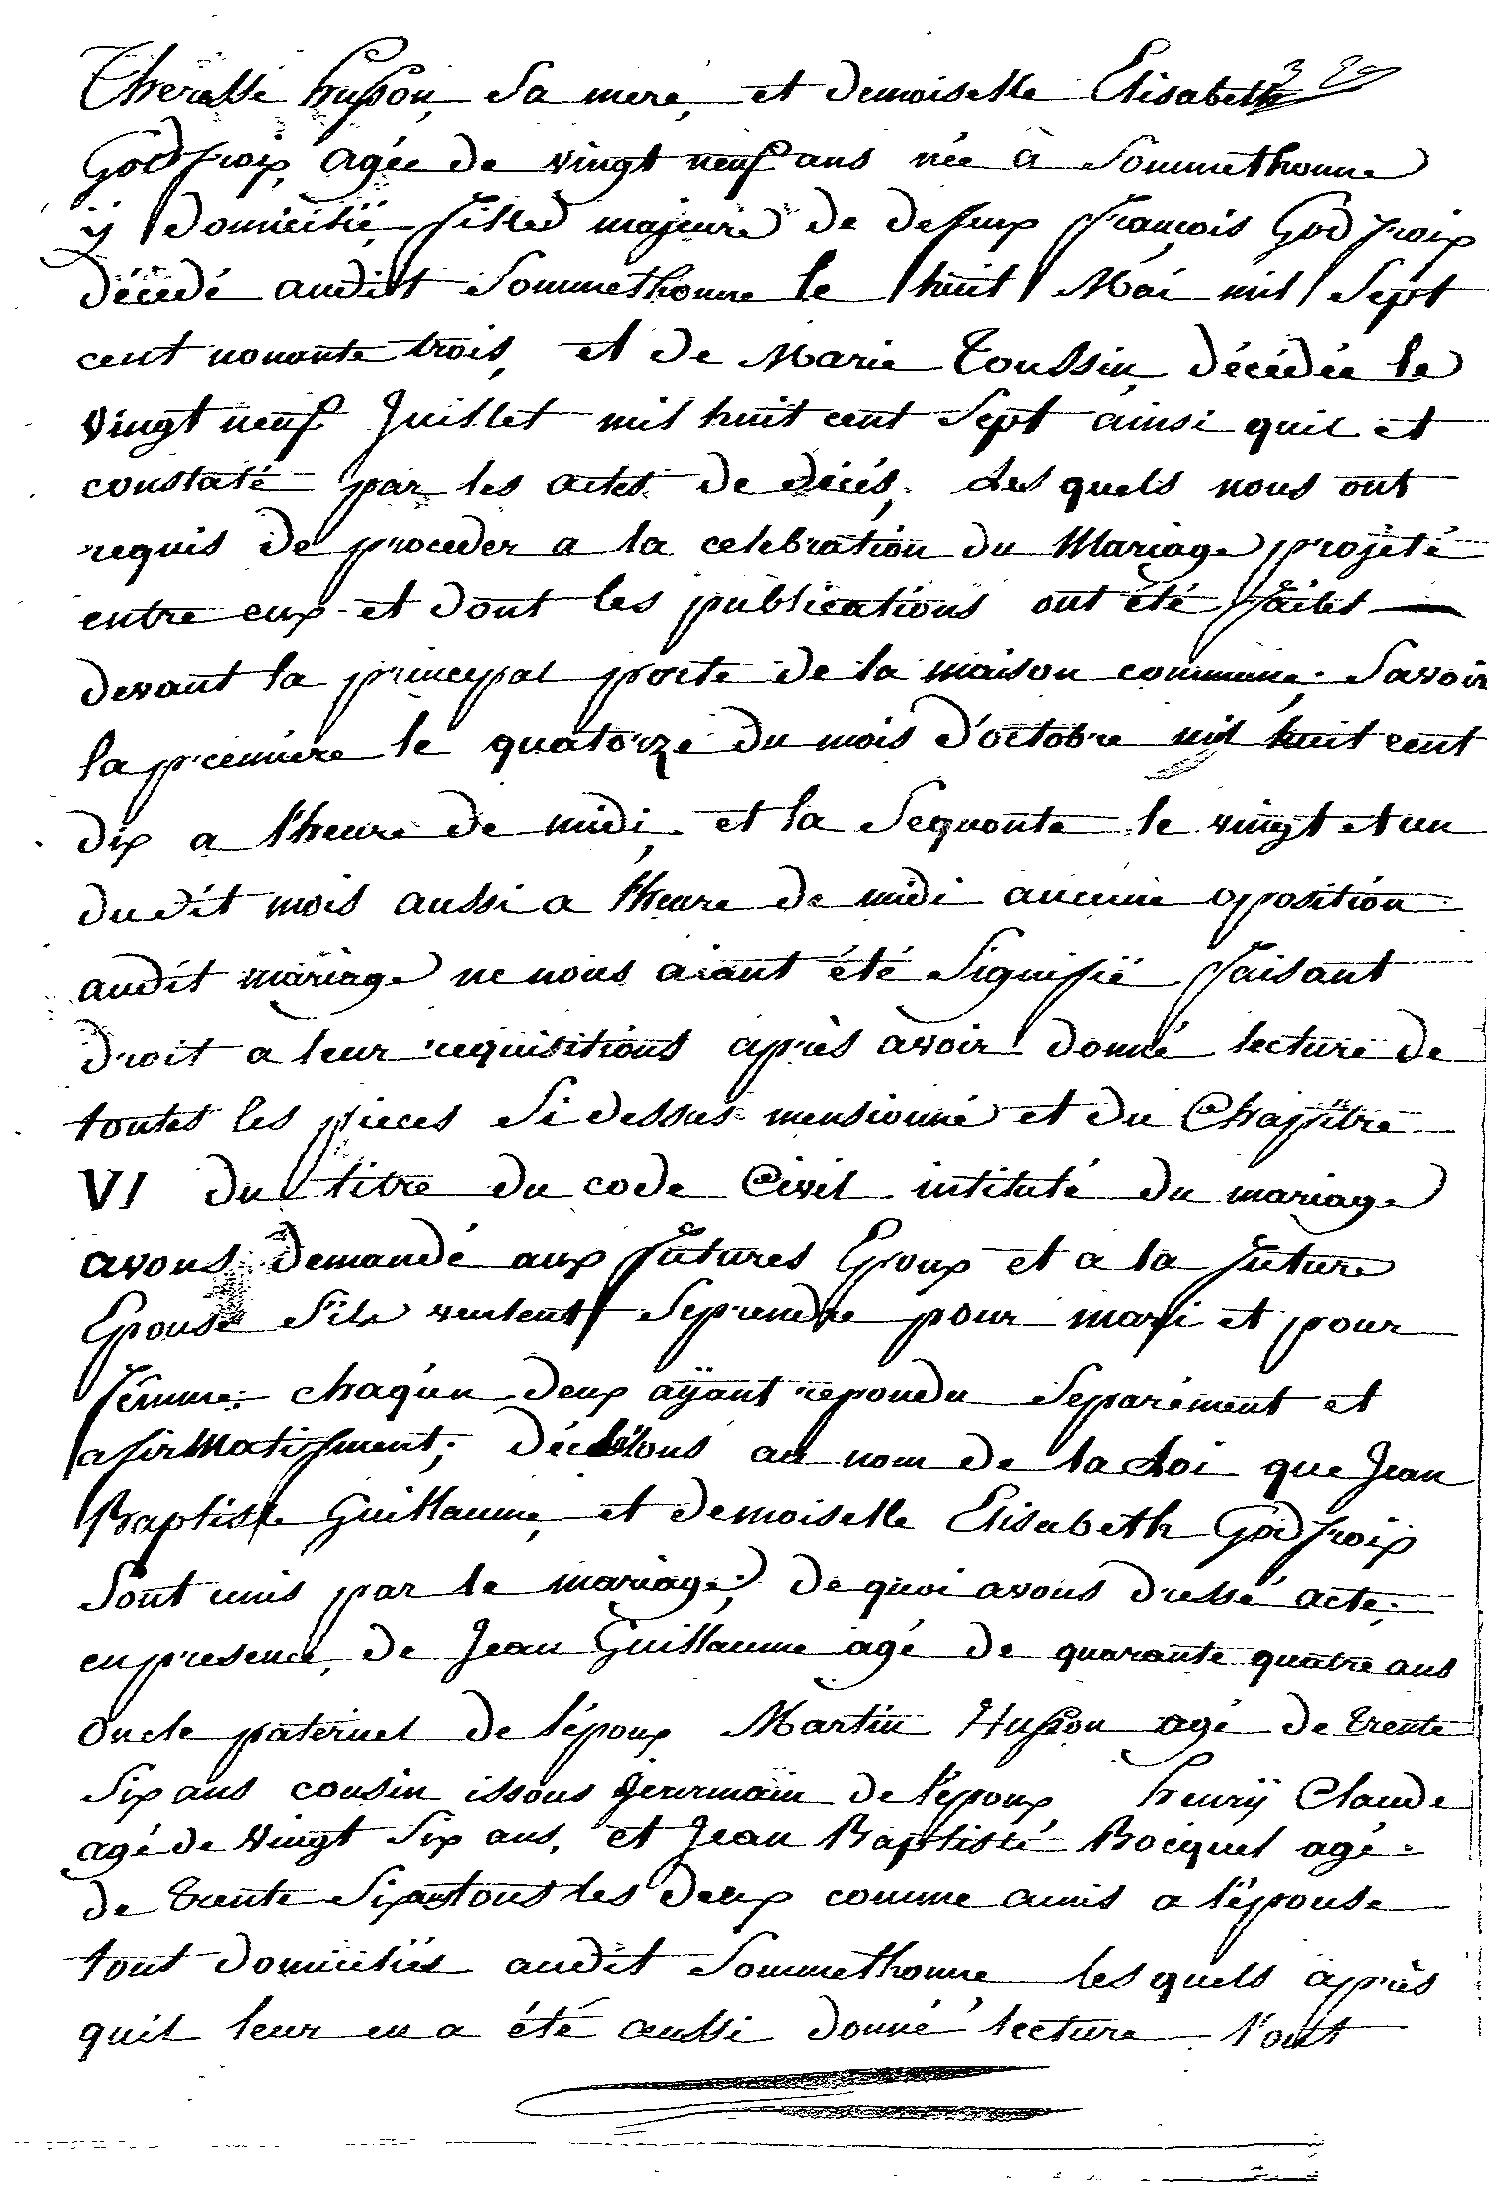 Theresse husson, sa mere, et demoiselle Elisabeth
Godfroix, agée de vingt neuf ans née à Sommethonne
y domicilié, fille majeure de defeux françois Godfroix
décédé audit Sommethonne le huit Mai mil Sept
cent nonante trois, et de Marie Toussin, décédée le
vingt neuf Juillet mil huit cent Sept ainsi quil et
constaté par les actes de décés, les quels nous ont
requis de proceder a la celebration du Mariage projeté
entre eux et dont les publications ont été faites
devant la principal porte de la maison commune, Savoir
la premiere le quatorze du mois d'octobre mil huit cent
dix a l'heure de midi, et la Seqonte le vingt et un
dudit mois aussi a l'heure de midi aucune oposition
audit mariage ne nous aiant été Signifié faisant
droit a leur requisitions après avoir donné lecture de
toutes les pieces Si dessus mensionné et du Chapitre
VI du titre du code Civil intitulé du mariage
avons demandé aux futures Epoux et a la future
Epouse S'ils veulent Seprendre pour mari et pour
femme; chaqu'un deux aÿant repondu Separément et
afirmatifment; déclarons au nom de la Loi que Jean
Baptiste Guillaume, et demoiselle Elisabeth Godfroix
Sont unis par le mariage; de quoi avons dressé acte,
en presence, de Jean Guillaume agé de quarante quatre ans
oncle paternel de l'époux Martin Husson agé de trente
Six ans cousin issous germain de l'époux henrÿ Claude
agé de vingt Six ans, et Jean Baptiste Rocquel agé
de trente Six ans tous les deux comme amis a l'épouse
tout domiciliés audit Sommethonne les quels après
quil leur en a été aussi donné lecture l'ont